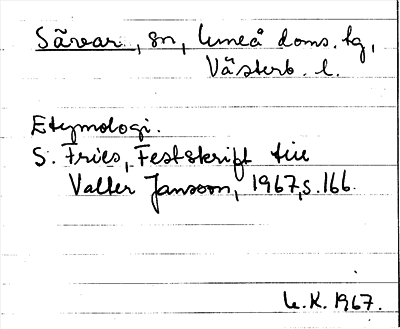 Sävar, sn, Umeå doms. tg,
Västerb. l.
Etymologi.
S. Fries, Festskrift till
Valter Jansson, 1967, s. 166.
U.K. 1967.